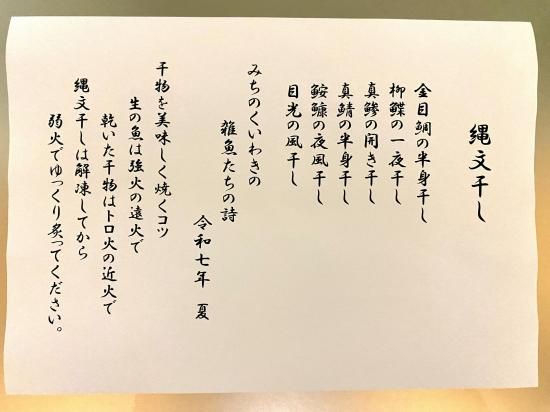 縄文干し
金目鯛の半身干し
柳鰈の一夜干し
真鯵の開き干し
真鯖の半身干し
鮟鱇の夜風干し
目光の風干し
みちのくいわきの
雑魚たちの詩
令和七年 夏
干物を美味しく焼くコツ
生の魚は強火の遠火で
乾いた干物はトロ火の近火で
縄文干しは解凍してから
弱火でゆっくり炙ってください。